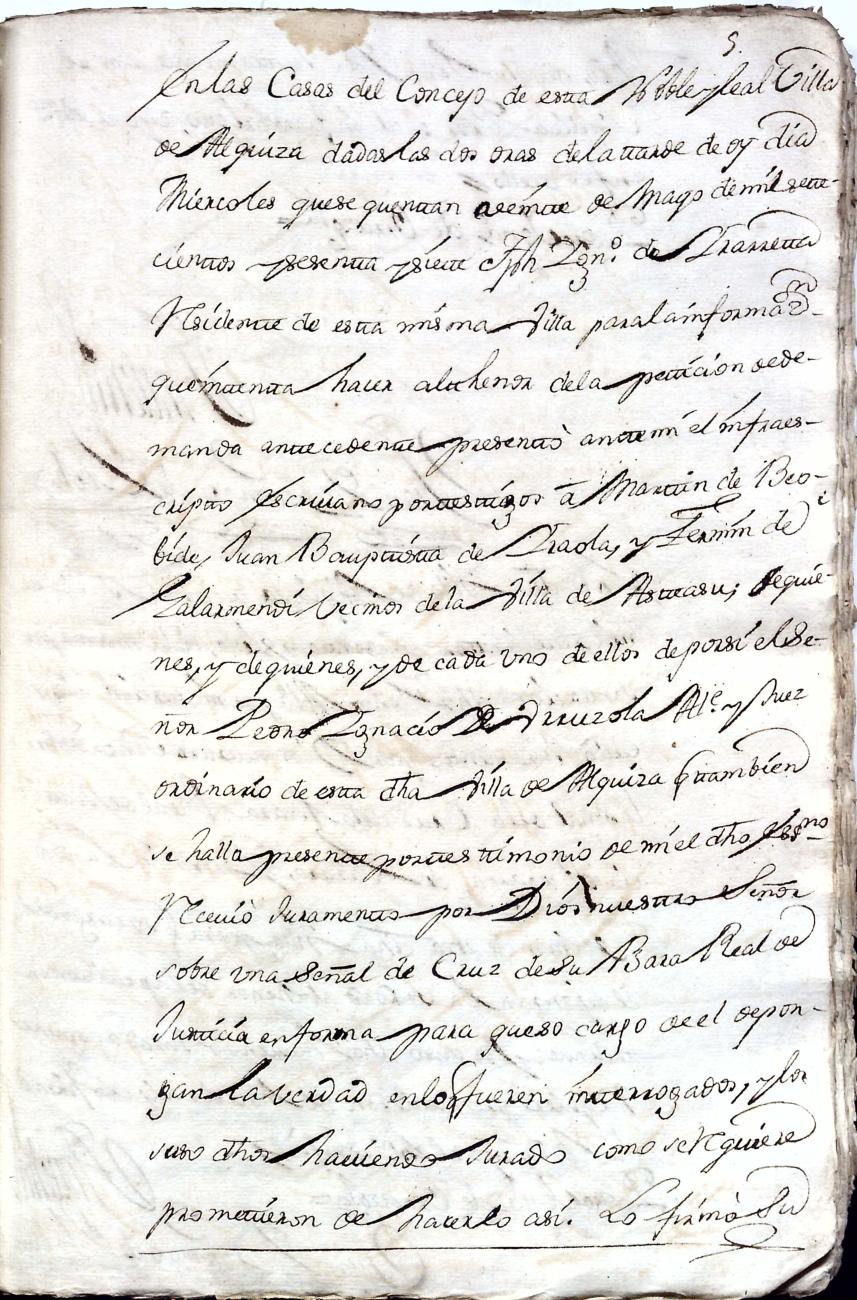 5.
En las Casas del Concejo de esta Noble y leal Villa
de Alquiza dadas las dos oras de la ttarde de oy dia
Miercoles que se quenttan a veintte de Mayo de mil sette-
cienttos y sesentta y siette Jph Ygn.º de Ybarretta
Residentte de estta misma Villa para la informaon.
que inttentta hacer al thenor de la petticion de de-
manda anttecedentte presenttò antte mi el infraes-
criptto Escriuano por testtigos â Marttin de Beo-
bide, Juan Baupttistta de Yraola, y Fermin de
Galarmendi vecinos de la Villa de Astteasu; de quie-
nes, y de quienes, y de cada vno de ellos de por si el Se-
ñor Pedro Ygnacio de Vrruzola Alᵉ. y Juez
ordinario de estta dha Villa de Alquiza q ttambien
se halla presentte por testtimonio de mi el dho Esno
Receuiò Juramentto por Dios nuesttro Señor
sobre vna Señal de Cruz de su Bara Real de
Justticia en forma para que so cargo de el depon-
gan la verdad en lo q fueren intterrogados, y los
suso dhos hauiendo Jurado como se Requiere
promettieron de hacerlo asi. Lo firmò Su